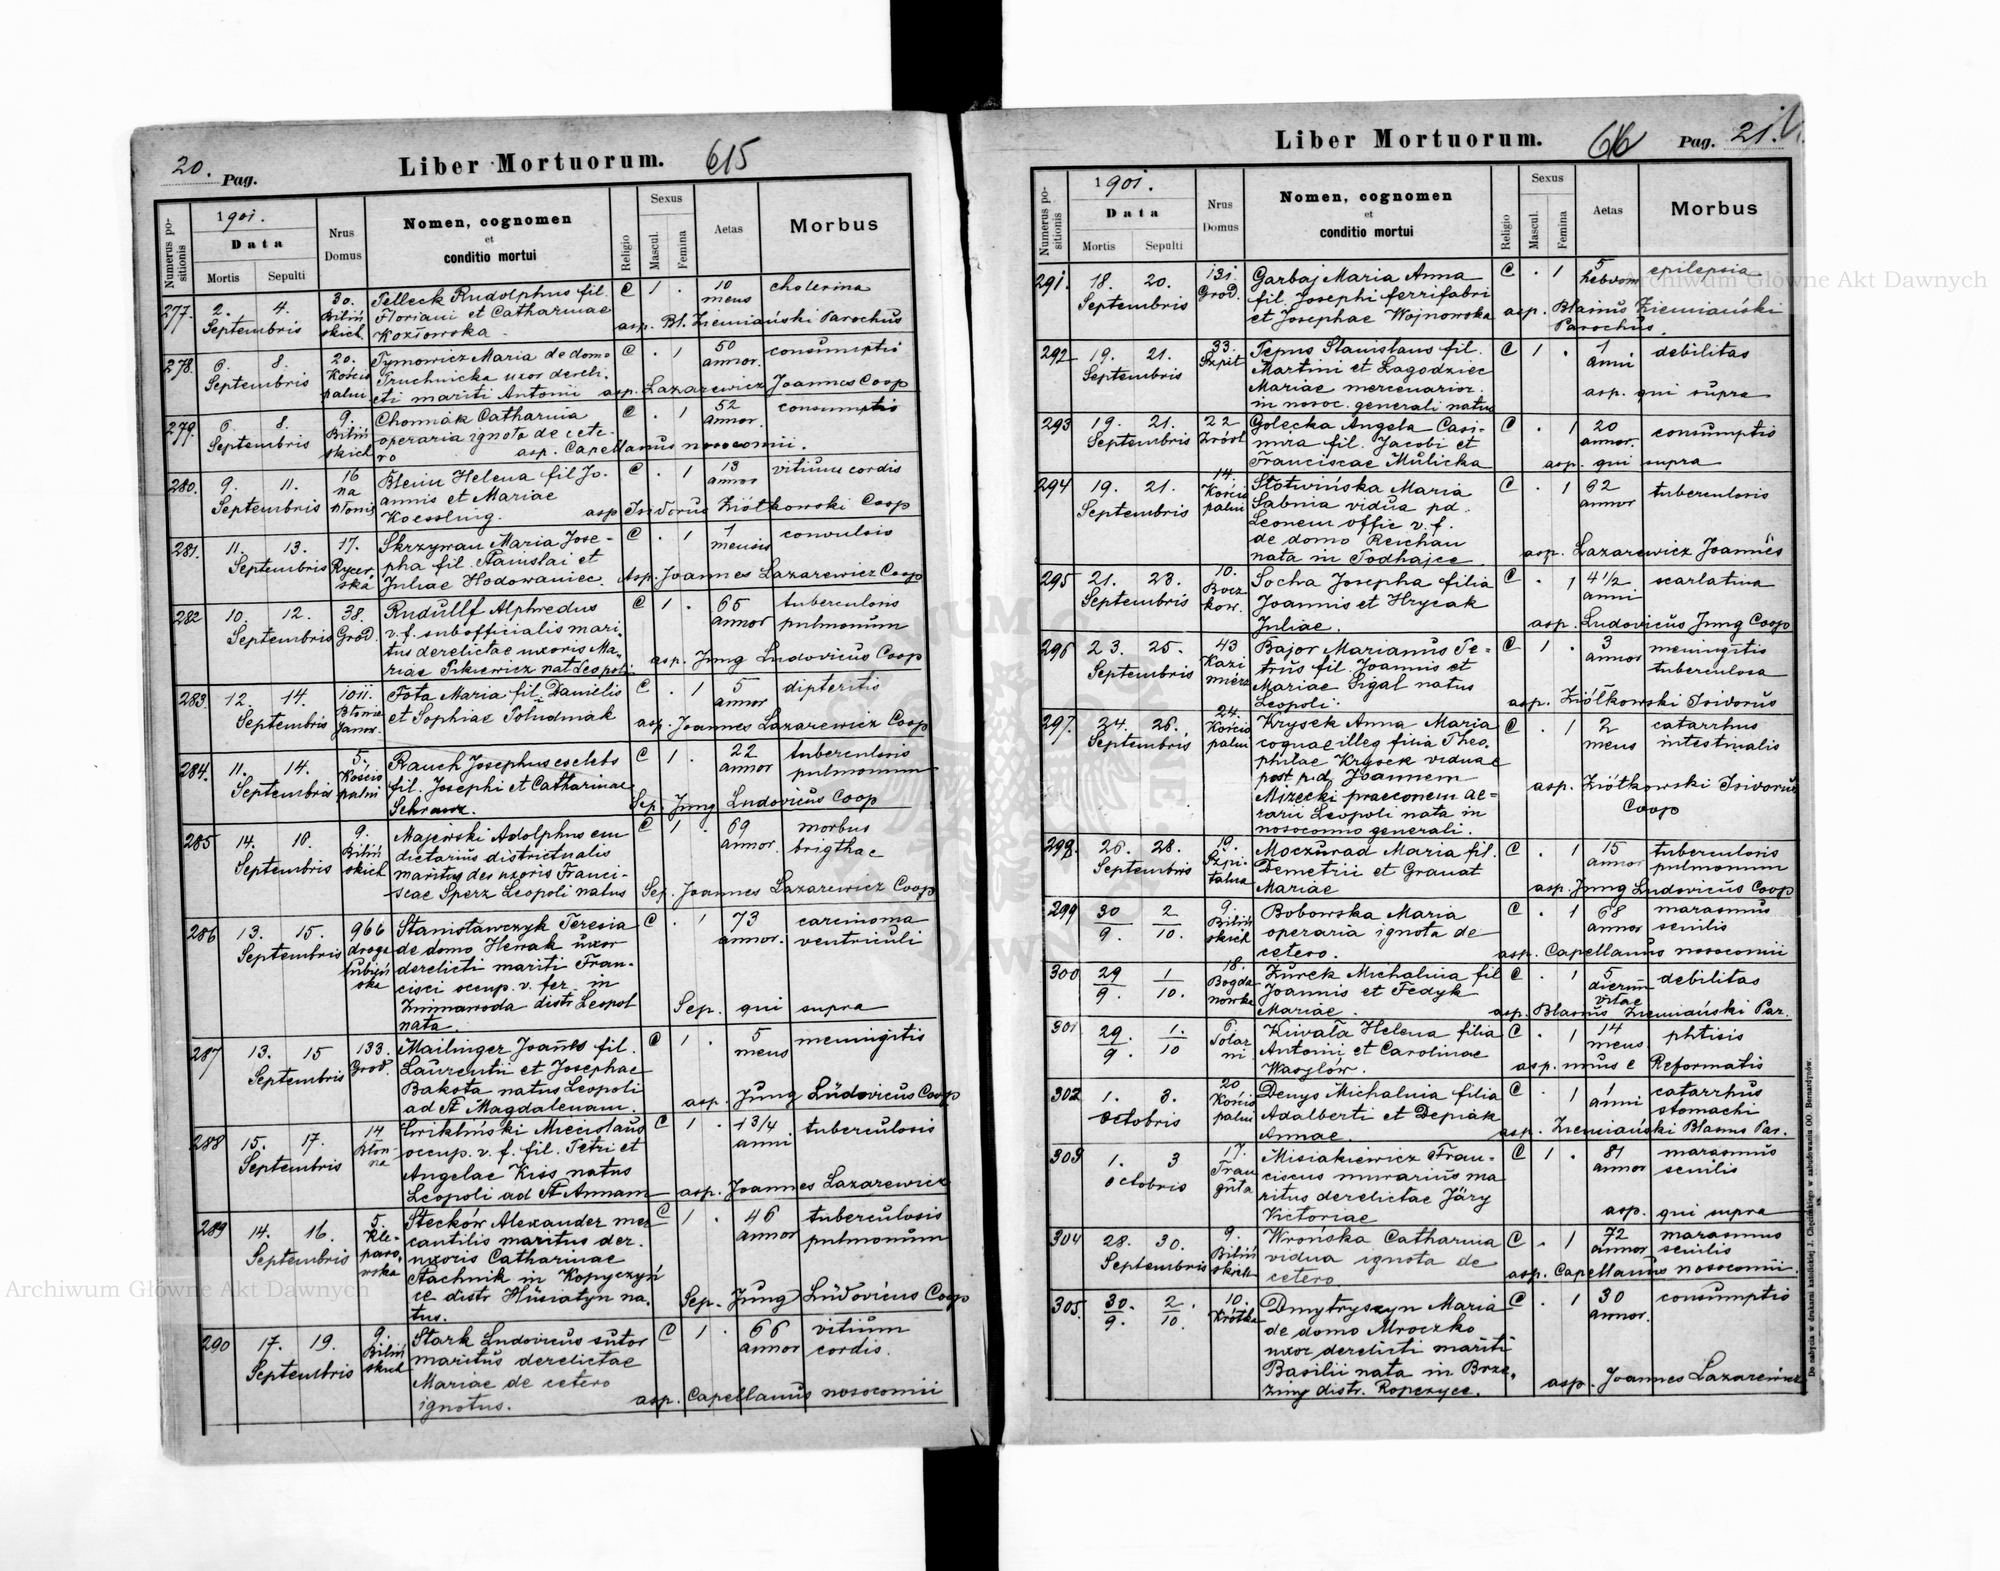 20. Pag.
Liber Mortuorum.
615
Numerus positionis
1901.
Data
Mortis
Sepulti
Nrus Domus
Nomen, cognomen
et
conditio mortui
Religio
Sexus
Mascul.
Femina
Aetas
Morbus
277. 2. 4. 30. Telleck Rudolphus fil. C 1 . 10 cholerina
Septembris Biliń Floriani et Catharinae mens
skich Kozłowska. asp. Bl. Ziemiański Parochus
278. 6. 8. 20. Tymowicz Maria de domo C . 1 50 consumptio
Septembris Kościo Pruchnicka uxor dereli- annor.
palni cti mariti Antonii asp. Lazarewicz Joannes Coop
279. 6. 8. 9. Chomiak Catharina C . 1 52 consumptio
Septembris Biliń operaria ignota de cete- annor.
skich ro asp. Capellanus nosocomii.
280. 9. 11. 16 Bleim Helena fil Jo- C . 1 13 vitium cordis
Septembris na annis et Mariae annor
Błonie Koessling. asp Isidorus Ziółkowski Coop
281. 11. 13. 17. Skrzywan Maria Jose- C . 1 1 convulsio
Septembris Rycer pha fil. Stanislai et mensis
ska Juliae Hodowaniec. Asp. Joannes Lazarewicz Coop
282 10. 12. 38. Rudullf Alphredus C 1 . 65 tuberculosis
Septembris Grod v. f. subofficialis mari- annor pulmonum
tus derelictae uxoris Ma-
riae Pikiewicz nat Leopoli asp. Jung Ludovicus Coop
283. 12. 14. 1011. Fota Maria fil. Danielis C . 1 5 dipteritis
Septembris Błonie et Sophiae Południak annor
Janow. asp. Joannes Lazarewicz Coop
284. 11. 14. 5. Rauch Josephus coelebs C 1 . 22 tuberculosis
Septembris Kościo fil. Josephi et Catharinae annor pulmonum
palni Schranz. Sep. Jung Ludovicus Coop
285 14. 16. 9. Majewski Adolphus em C 1 . 69 morbus
Septembris Biliń dictarius districtualis annor. brigthae
skich maritus der uxoris Franci-
scae Sperz Leopoli natus Sep. Joannes Lazarewicz Coop
286 13. 15. 966 Stanisławczyk Teresia C . 1 73 carcinoma
Septembris droga de domo Hewak uxor annor. ventriculi
lubień derelicti mariti Fran-
ska cisci occup. v. fer. in
Zimnawoda distr Leopol Sep. qui supra
nata
287 13. 15 133. Mailinger Joannes fil. C 1 . 5 meningitis
Septembris Grod. Laurentii et Josephae mens
Bakota natus Leopoli
ad St Magdalenam. asp. Jung Lüdovicus Coop
288 15. 17. 14 Ćwikliński Miecislaus C 1 . 1 3/4 tuberculosis
Septembris Błon- occup. v. f. fil. Petri et anni
na Angelae Kiss natus
Leopoli ad St Annam asp. Joannes Lazarewicz
289 14. 16. 5. Stecków Alexander mer C 1 . 46 tuberculosis
Septembris Kle- cantilis maritus der. annor pulmonum
paro- uxoris Catharinae
wska Stachnik in Kopyczyń
ce distr Hüsiatyn na- Sep. Jung Lüdovicus Coop
tus.
290 17. 19. 9. Stark Ludovicus sutor C 1 . 66 vitium
Septembris Biliń maritus derelictae annor cordis.
skich Mariae de cetero
ignotus. asp. Capellanus nosocomii
Liber Mortuorum.
616
Pag. 21.
Numerus positionis
1901.
Data
Mortis
Sepulti
Nrus Domus
Nomen, cognomen
et
conditio mortui
Religio
Sexus
Mascul.
Femina
Aetas
Morbus
291. 18. 20. 131. Garbaj Maria Anna C . 1 5 epilepsia
Septembris Grod. fil. Josephi ferrifabri hebdom
et Josephae Wojnowska asp. Blasius Ziemiański
Parochus.
292 19. 21. 33. Tepus Stanislaus fil. C 1 . 1 debilitas
Septembris Szpit Martini et Łagodziec anni
Mariae mercenarior.
in nosoc. generali natus asp. qui supra
293 19. 21. 22 Golecka Angela Casi- C . 1 20 consumptio
Septembris Źródl mira fil. Jacobi et annor.
Franciscae Mulicka asp. qui supra
294 19. 21. 14. Słotwińska Maria C . 1 62 tuberculosis
Septembris Kościo Sabina vidua pd. annor
palni Leonem offic v. f.
de domo Reichan
nata in Podhajce asp. Lazarewicz Joannes
295 21. 23. 10. Socha Josepha filia C . 1 4 1/2 scarlatina
Septembris Bocz Joannis et Hrycak anni
kow. Juliae. asp. Ludovicus Jung Coop
296 23. 25. 43 Bajor Marianus Pe- C 1 . 3 meningitis
Septembris Kazi trus fil. Joannis et annor tuberculosa
mierz Mariae Sigal natus
Leopoli. asp. Ziółkowski Isidorus
297. 24. 26. 24. Krysek Anna Maria C . 1 2 catarrhus
Septembris Kościo coquae illeg filia Theo- mens intestinalis
palni philae Krysek viduae
post p.d. Joannem asp. Ziółkowski Isidorus
Mizecki praeconem ae- Coop
rarii Leopoli nata in
nosocomio generali.
298. 26. 28. 19. Moczurad Maria fil. C . 1 15 tuberculosis
Septembris Szpi- Demetrii et Granat annor pulmonum
talna Mariae asp. Jung Ludovicus Coop
299 30 2 9. Bobowska Maria C . 1 68 marasmus
9. 10. Biliń operaria ignota de annor senilis
skich cetero. asp. Capellanus nosocomii
300 29 1 18. Żurek Michalina fil C . 1 5 debilitas
9. 10. Bogda Joannis et Fedyk dierum
nowka Mariae. vitae
asp. Blasius Ziemiański Par.
301 29. 1. 6 Kuvała Helena filia C . 1 14 phtisis
9. 10 Polar Antonii et Carolinae mens
ni Wasylów. asp. unus e Reformatis
302 1. 3. 20 Denys Michalina filia C . 1 1 catarrhus
Octobris Kościo Adalberti et Depiak anni stomachi
palni Annae. asp. Ziemiański Blasius Par.
303 1. 3 17. Misiakiewicz Fran- C 1 . 81 marasmus
Octobris Trau ciscus murarius ma annor senilis
guta ritus derelictae Järy
Victoriae asp. qui supra
304 28. 30. 9. Wrońska Catharina C . 1 72 marasmus
Septembris Biliń vidua ignota de annor senilis
skich cetero asp. Capellanus nosocomii.
305. 30. 2. 10. Dmytryszyn Maria C . 1 30 consumptio
9. 10. Krótka de domo Mroczko annor.
uxor derelicti mariti
Basilii nata in Brze-
ziny distr. Ropczyce. asp. Joannes Lazarewicz
Do nabycia w drukarni katolickiej J. Chęcińskiego w zabudowaniu OO. Bernardynów.
Archiwum Główne Akt Dawnych
Archiwum Główne Akt Dawnych